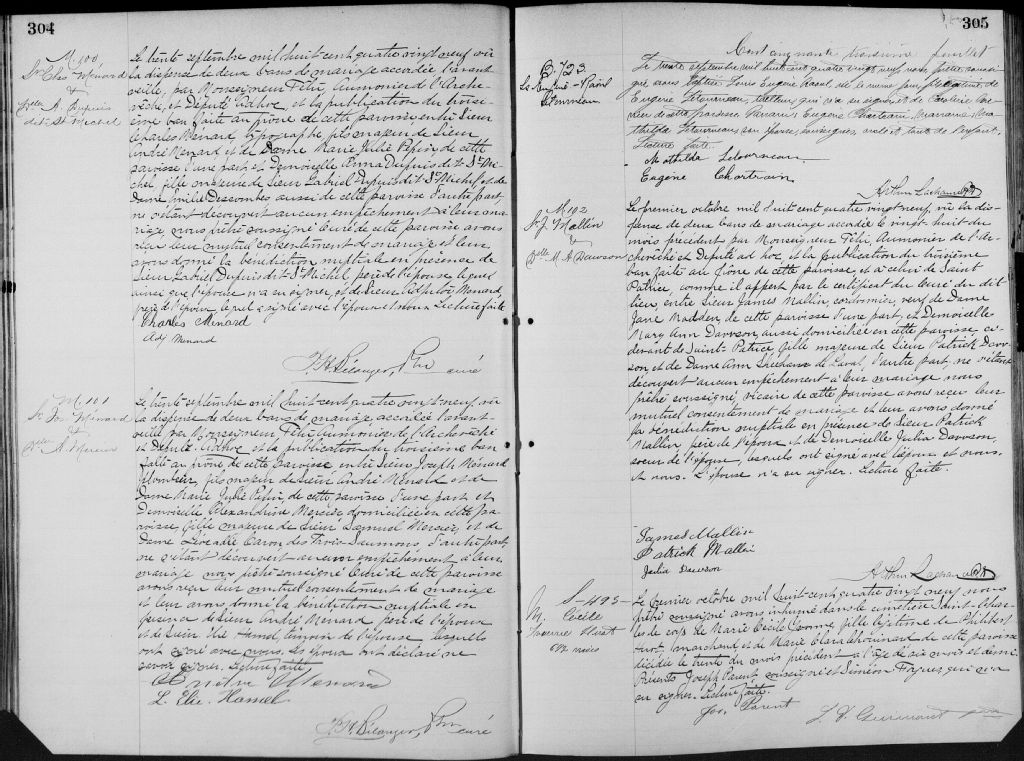 304
M. 100
Sr Chs Ménard
&
Delle A. Dupuis
dit St Michel
Le trente septembre mil huit cent quatre vingt neuf, vu
la dispense de deux bans de mariage accordée l'avant
veille, par Monseigneur Têtu, aumônier de l'Arche-
vêché, et Député ad hoc, et la publication du troisi-
ème ban faite au prône de cette paroisse entre Sieur
Charles Ménard, typographe, fils majeur de Sieur
André Ménard et de Dame Marie Julie Pepin de cette
paroisse d'une part, et Demoiselle Anna Dupuis dit St Mi-
chel, fille majeure de Sieur Gabriel Dupuis dit St Michel et de
Dame Emilie Descombes aussi de cette paroisse d'autre part,
ne s'étant découvert aucun empêchement à leur ma-
riage, nous prêtre soussigné Curé de cette paroisse avons
reçu leur mutuel consentement de mariage et leur
avons donné la bénédiction nuptiale en présence de
Sieur Gabriel Dupuis dit St Michel père de l'épouse lequel
ainsi que l'épouse n'a su signer, et de Sieur Adjutor Menard,
frère de l'époux, lequel a signé avec l'époux et nous. Lecture faite
Charles Menard
Adj Menard
F. H. Bélanger, Ptre curé
M. 101
Sr Jos Ménard
&
Delle A. Mercier
Le trente septembre mil huit cent quatre vingt neuf, vu
la dispense de deux bans de mariage accordée l'avant-
veille, par Monseigneur Têtu Aumônier de l'Archevêché
et Député ad hoc et la publication du troisième ban
faite au prône de cette paroisse entre Sieur Joseph Ménard
plombier, fils majeur de Sieur André Ménard et de
Dame Marie Julie Pepin, de cette paroisse d'une part et
Demoiselle Alexandrine Mercier domiciliée en cette pa-
roisse, fille majeure de Sieur Samuel Mercier, et de
Dame Léocadie Caron des Trois-Saumons d'autre part,
ne s'étant découvert aucun empêchement à leur
mariage nous prêtre soussigné Curé de cette paroisse
avons reçu leur mutuel consentement de mariage
et leur avons donné la bénédiction nuptiale en
présence de Sieur André Ménard père de l'époux
et de Sieur Elie Hamel, témoin de l'épouse lesquels
ont signé avec nous. Les époux ont déclaré ne
savoir signer. Lecture faite.
Menard
L. Elie Hamel
F. H. Bélanger, Ptre curé
305
Cent cinquante troisième feuillet
B. 723
Ls Eugène-Raoul
Létourneau
Le trente septembre mil huit cent quatre vingt neuf, nous prêtre soussi-
gné avons baptisé Louis Eugène Raoul, né le même jour, fils légitime de
Eugène Létourneau, tailleur, qui n'a su signer, et de
de cette paroisse. Parrain Eugène Chartrain, Marraine Ma-
thilda Létourneau son épouse, soussignés, oncle et tante de l'enfant.
Lecture faite.
Mathilda Letourneau
Eugene Chartrain
Arthur Lachance Ptr
M. 102
Sr J. Mallin
&
Delle M. A. Dawson
Le premier octobre mil huit cent quatre vingt neuf, vu la dis-
pense de deux bans de mariage accordée le vingt-huit du
mois précédent par Monseigneur Têtu, Aumônier de l'Ar-
chevêché et Député ad hoc, et la publication du troisième
ban faite au prône de cette paroisse et à celui de Saint
Patrice, comme il appert par le certificat du Curé du dit
lieu, entre Sieur James Mallin, cordonnier, veuf de Dame
Jane Madden, de cette paroisse d'une part, et Demoiselle
Mary Ann Dawson, aussi domiciliée en cette paroisse, ci-
devant de Saint-Patrice, fille majeure de Sieur Patrick Daw-
son, et de Dame Ann Sheehan de Laval, d'autre part, ne s'étant
découvert aucun empêchement à leur mariage nous
prêtre soussigné, vicaire de cette paroisse avons reçu leur
mutuel consentement de mariage et leur avons donné
la bénédiction nuptiale en présence de Sieur Patrick
Mallin père de l'époux et de Demoiselle Julia Dawson,
soeur de l'épouse, lesquels ont signé avec l'époux et nous.
et nous. L'épouse n'a su signer. Lecture faite.
James Mallin
Patrick Mallin
Julia Dawson
Arthur Lachance Ptr
S-495-
M. Cécile
Yvonne Huot
6½ mois
Le premier octobre mil huit cent quatre vingt neuf nous
prêtre soussigné avons inhumé dans le cimetière Saint-Char-
les le corps de Marie Cécile Yvonne, fille légitime de Philibert
Huot, marchand, et de Marie Clara Chouinard de cette paroisse
décédée le trente du mois précédent à l'âge de six mois et demi.
Présents Joseph Parent, soussigné et Siméon Fagues, qui n'a
su signer. Lecture faite.
Jos. Parent